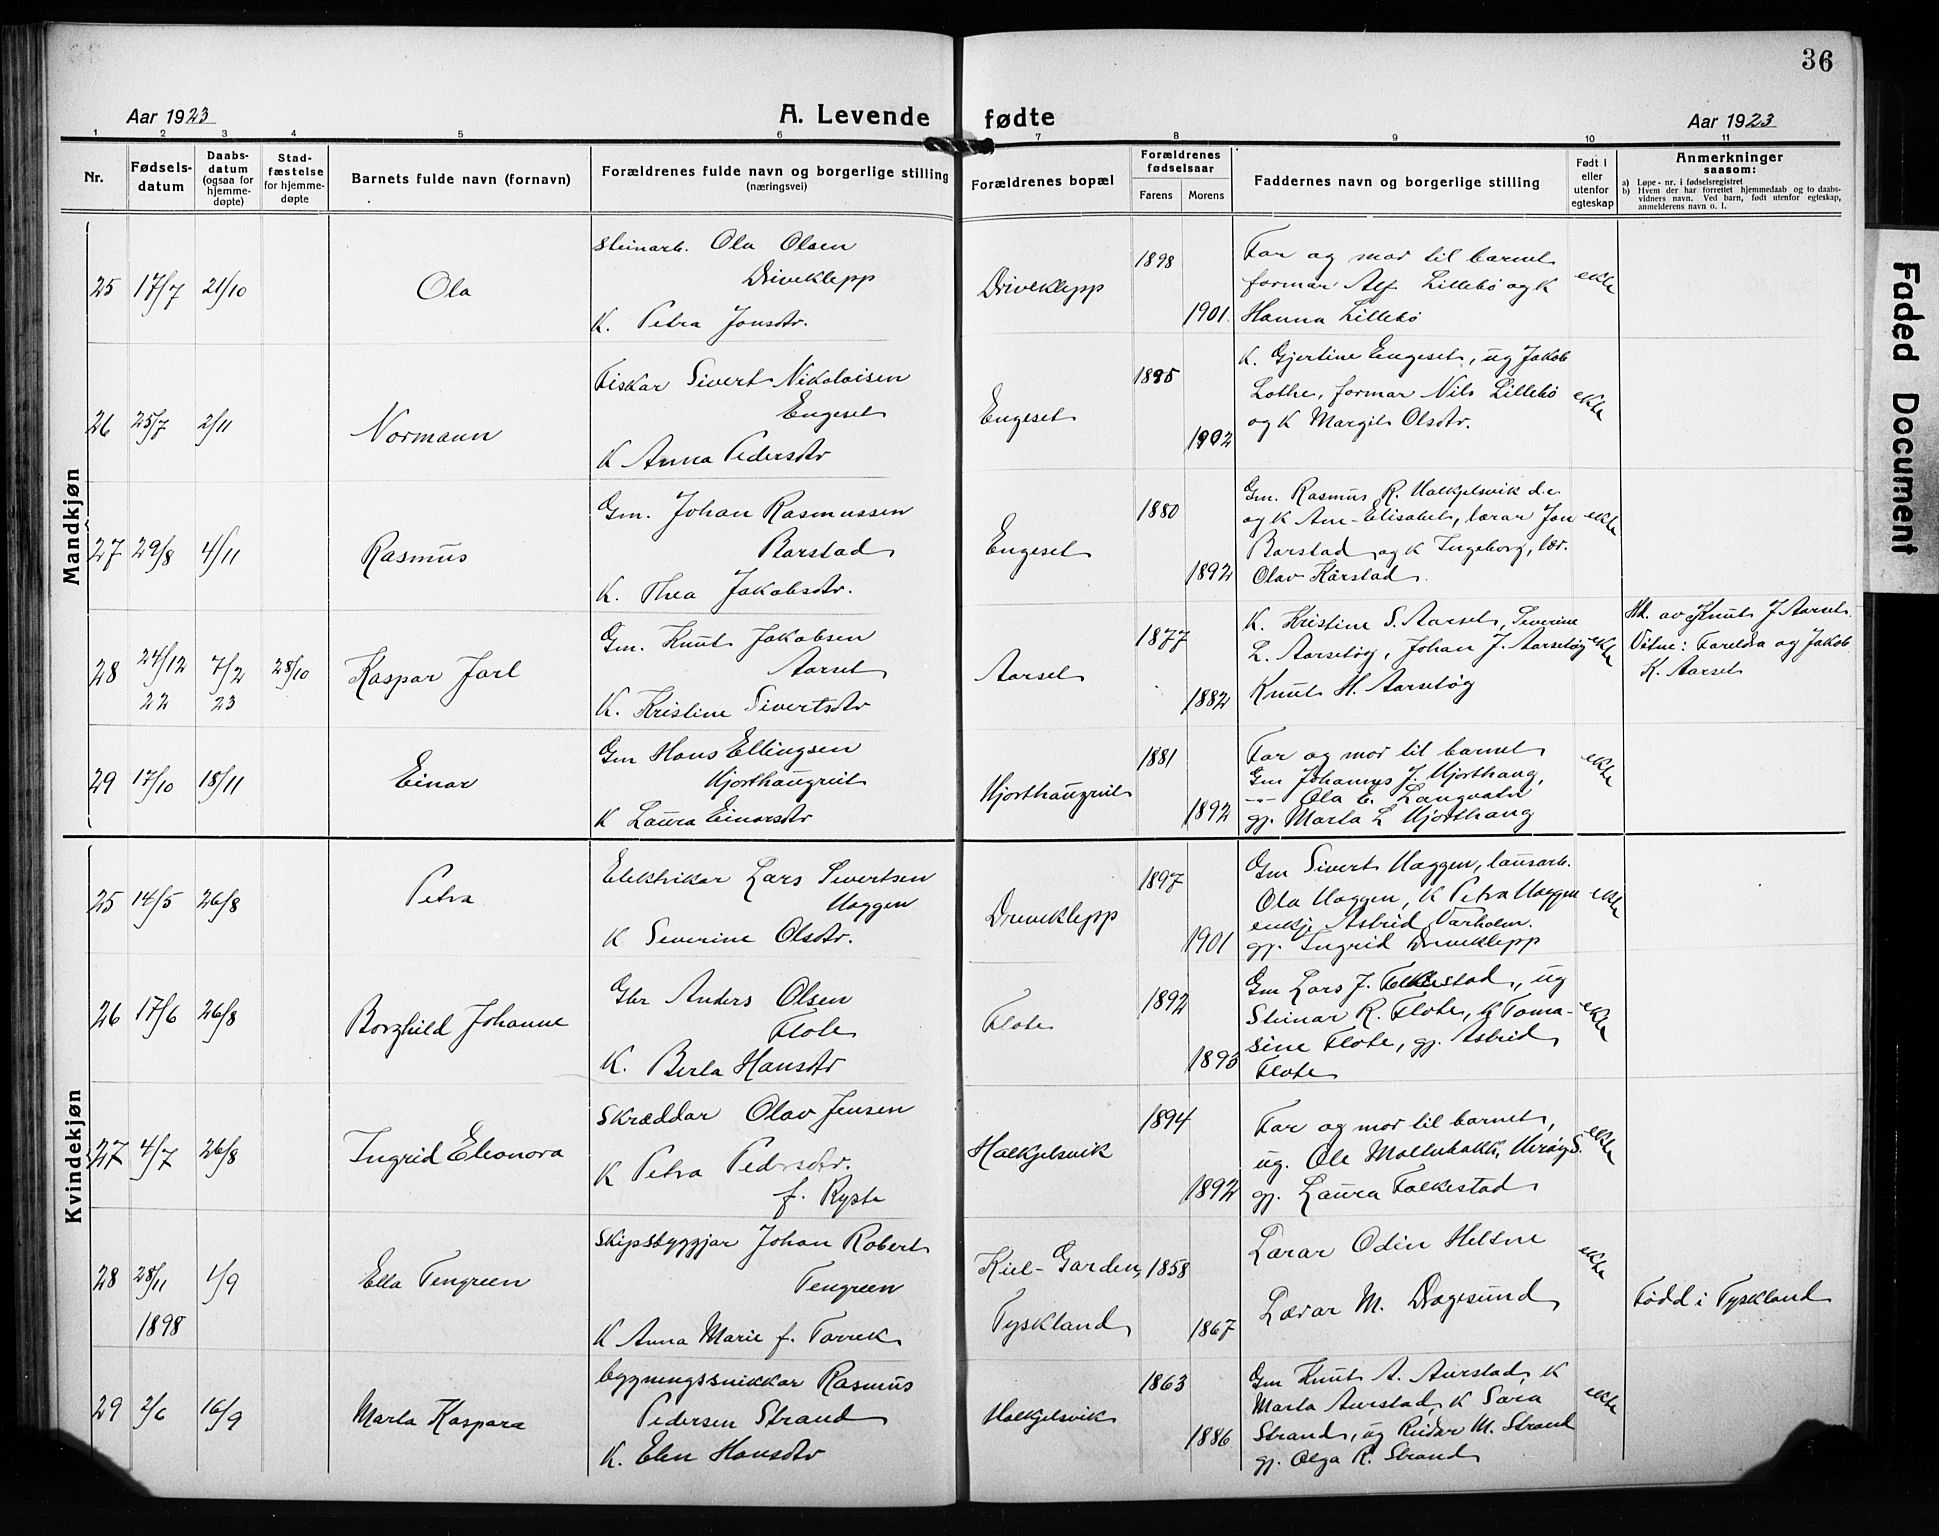 36
Aar 1923
A. Levende fødte
Aar 1923
1 2 3 4 5 6 7 8 9 10 11
Nr.
Fødsels-
datum
Daabs-
datum
(ogsaa for
hjemme-
døpte)
Stad-
fæstelse
for hjemme-
døpte
Barnets fulde navn (fornavn)
Forældrenes fulde navn og borgerlige stilling
(næringsvei)
Forældrenes bopæl
Forældrenes
fødselsaar
Farens Morens
Faddernes navn og borgerlige stilling
Født i
eller
utenfor
egteskap
Anmerkninger
saasom:
a) Løpe-nr. i fødselsregistret
b) Hvem der har forrettet hjemmedaab og to daabs-
vidners navn. Ved barn, født utenfor egteskap,
anmelderens navn o. l.
Mandkjøn
25 17/7 21/10
Ola
Steinarb. Ola Olsen
Driveklepp
K. Petra Jonsdtr.
Driveklepp
1898
1901.
Far og mor til barnet
formar Alf Lillebø og K
Hanna Lillebø
ekte
26 25/7 2/11
Normann
Fiskar Sivert Nikolaisen
Engeset
K Anna Pedersdtr
Engeset
1895
1902
K. Gjertine Engeset, ug Jakob
Lothe, formar Nils Lillebø
og K Margit Olsdtr.
ekte
27 29/8 4/11
Rasmus
Gm. Johan Rasmussen
Barstad
K. Thea Jakobsdtr.
Engeset
1880
1892
Gm. Rasmus R. Halkjelsvik d.e.
og K Ane-Elisabet, lærar Jon
Barstad og K Ingeborg, lær.
Olav Kårstad.
ekte
28 24/12 22 7/2 23 28/10
Kaspar Jarl
Gm. Knut Jakobsen
Aarset
K. Kristine Sivertsdtr
Aarset
1877
1882
K. Kristine S. Aarset, Severine
L. Aarsetøg, Johan J. Aarsetøg
Knut H. Aarsetøg
ekte
Hd. av Knut J Aarset.
Vitne: Foreldra og Jakob
K. Aarset
29 17/10 18/11
Einar
Gm Hans Ellingsen
Hjorthaugruit
K Laura Einarsdtr
Hjorthaugruit
1881
1892
Far og mor til barnet
Gm Johannes J. Hjorthaug,
-"- Ola E. Langvatn
gj. Marta L Hjorthaug
ekte
Kvindekjøn
25 14/5 26/8
Petra
Elektrikar Lars Sivertsen
Haggen
K Severine Olsdtr.
Driveklepp
1897
1901
Gm Sivert Haggen, lausarb.
Ola Haggen, K Petra Haggen
enkje Astrid Varholm.
gj. Ingrid Driveklepp
ekte
26 17/6 26/8
Borghild Johanne
Gbr Anders Olsen
Flote
K. Berta Hansdtr
Flote
1892
1893
Gm Lars J. Folkestad, ug
Steinar R. Flote, K Toma-
sine Flote, gj. Astrid
Flote
ekte
27 4/7 26/8
Ingrid Eleonora
Skræddar Olav Jensen
K Petra Pedersdtr.
f. Ryste
Halkjelsvik
1894
1892
Far og mor til barnet,
ug. Ole Mollebakk, Herøy S.
gj. Laura Folkestad
ekte
28 28/11 1898 1/9
Ella Tengreen
Skipsbyggjar Johan Robert
Tengreen
K Anna Marie f. Torrek
Kiel-Garden,
Tyskland
1858
1867
Lærar Odin Heltne
Lærar M. Dragesund
ekte
Fødd i Tyskland
29 2/6 16/9
Marta Kaspara
bygningssnikkar Rasmus
Pedersen Strand
K. Elen Hansdtr
Halkjelsvik
1863
1886
Gm Knut A. Aurstad, K
Marta Aurstad, K Sara
Strand, ug Reidar M. Strand
gj. Olga R. Strand
ekte
Faded Document